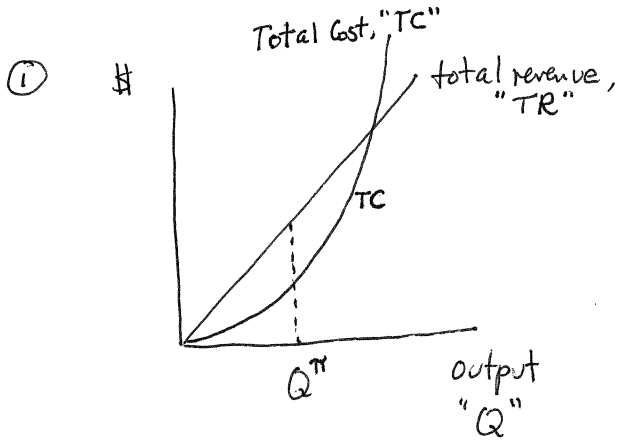 Total Cost, "TC"
① $ total revenue,
"TR"
TC
Q^π
output
"Q"